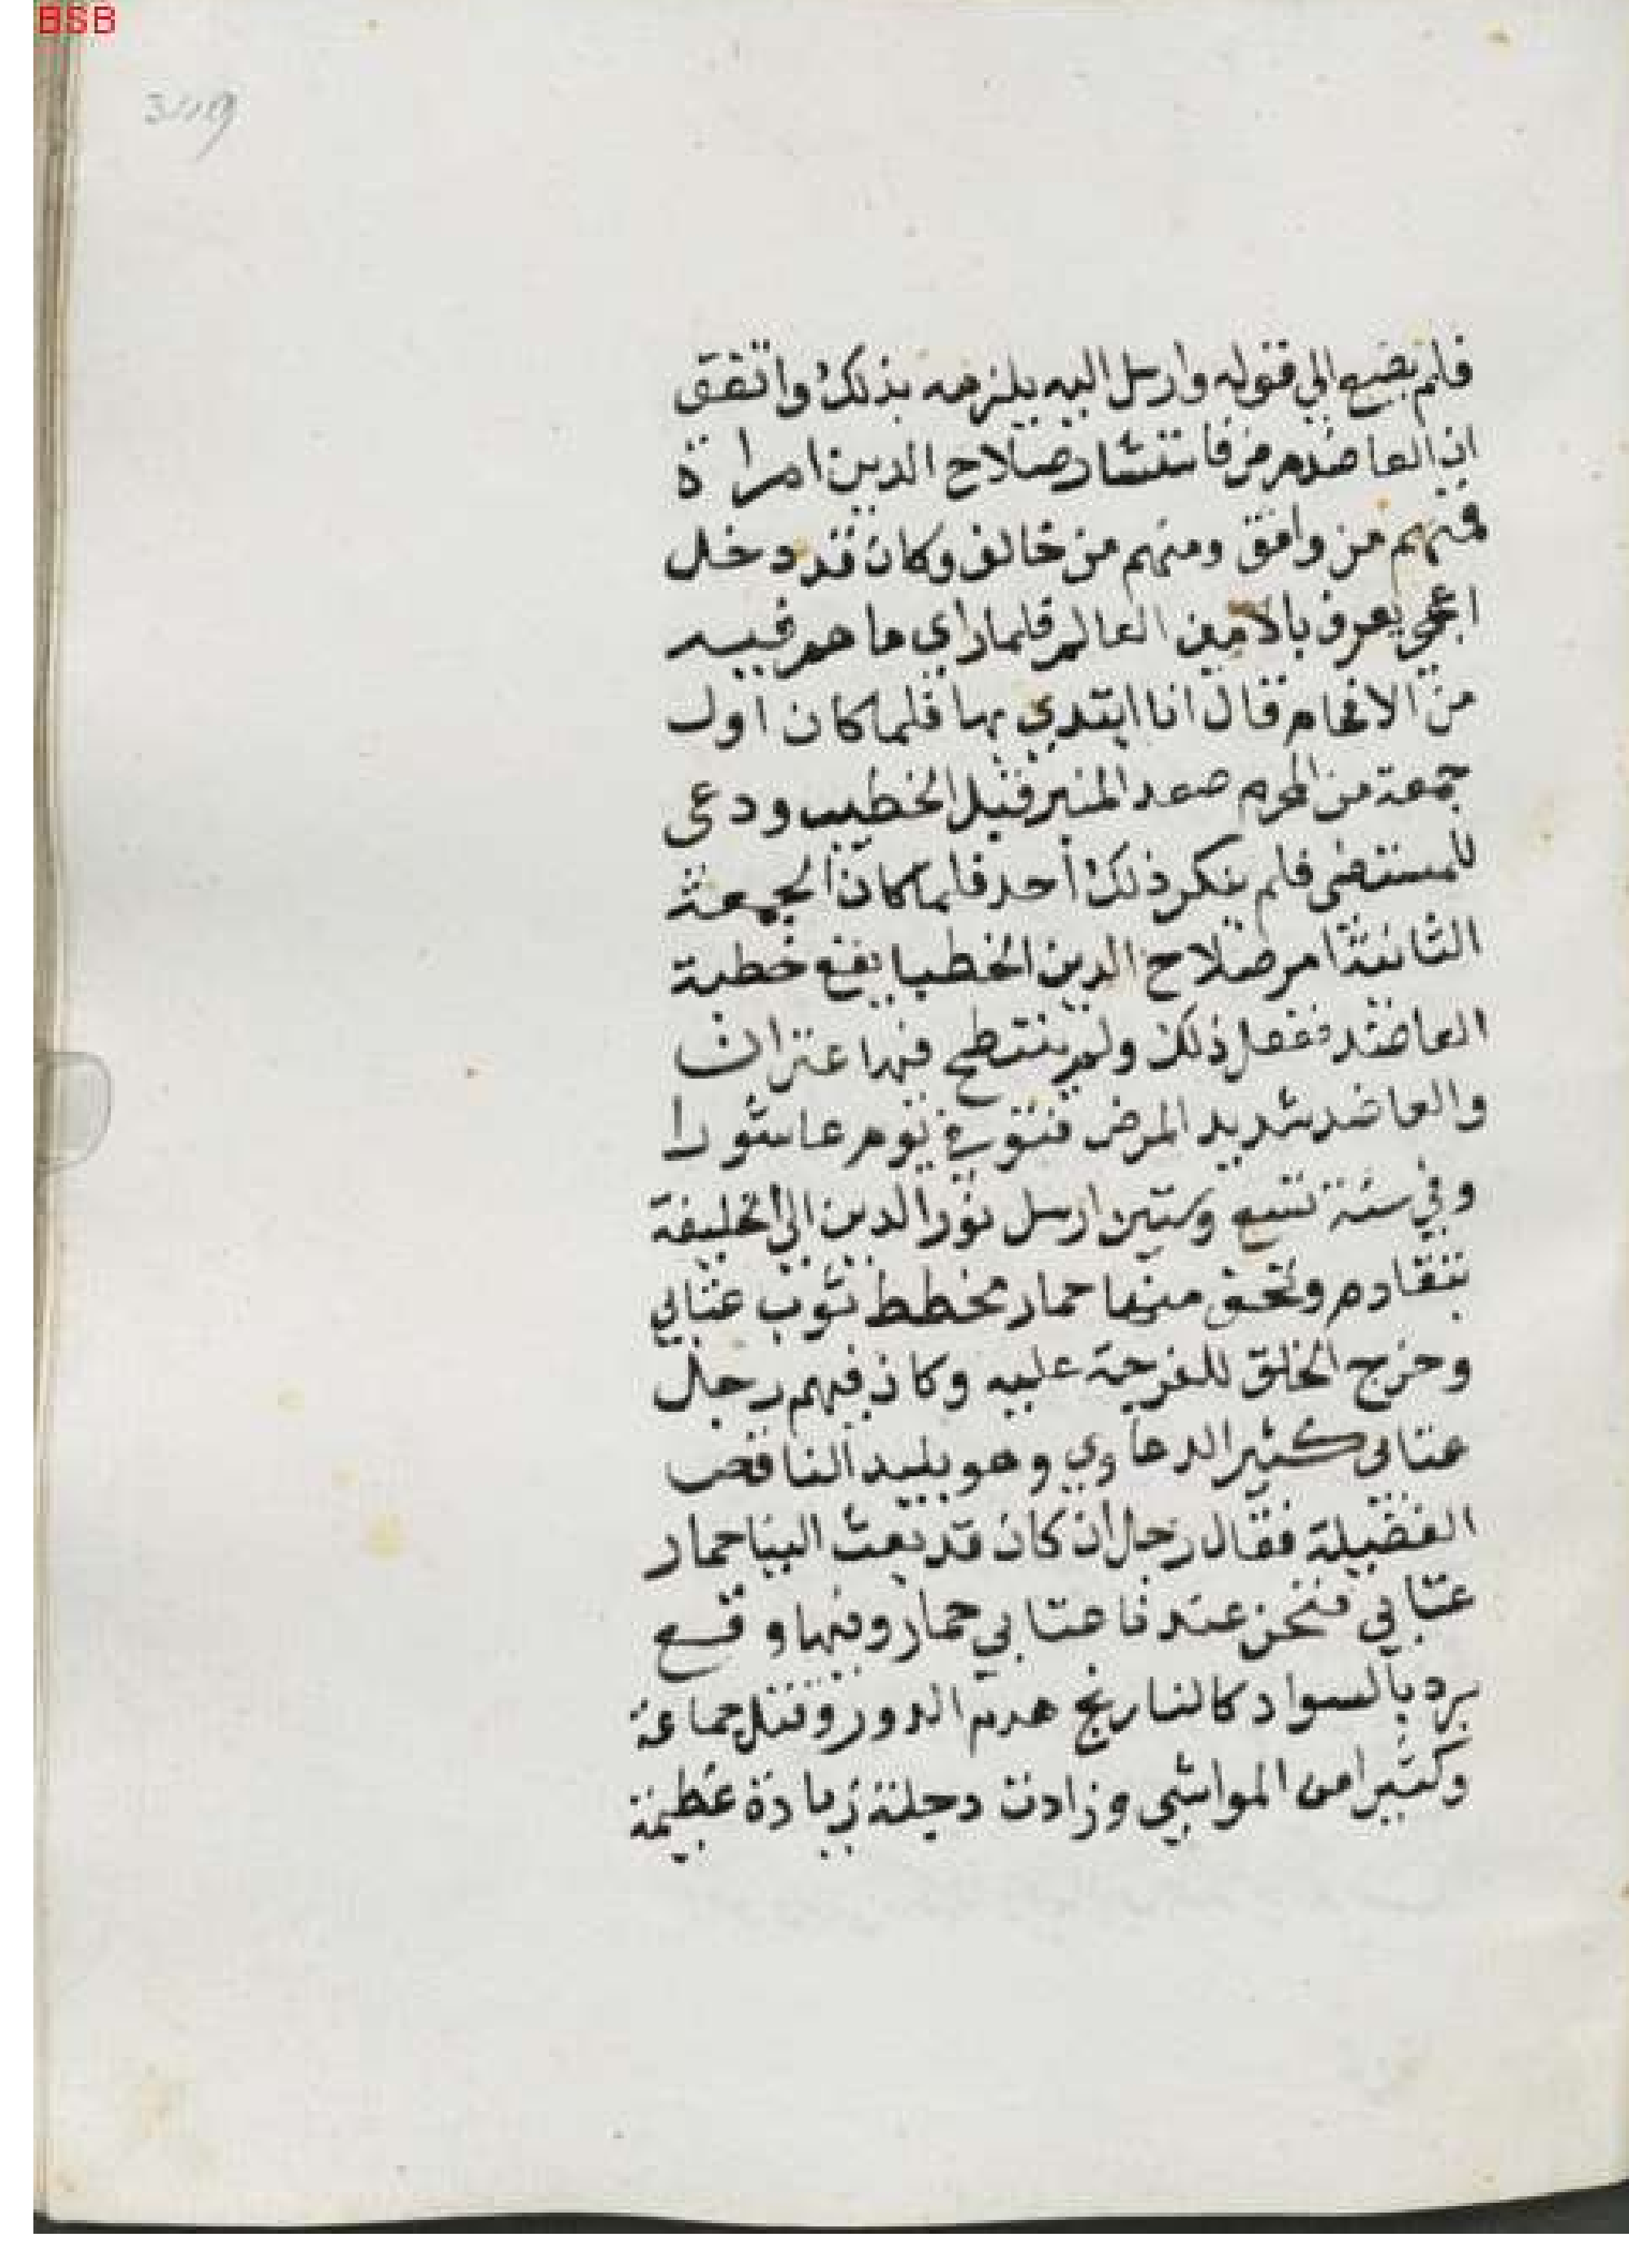 BSB
349
فلم يضع الي قوله وارسل اليه يلزمه بذلك واتفق
ان العاضد مرض فاستشار صلاح الدين امراة
فمنهم من وافق ومنهم من خالف وكان قد دخل
اعجمي يعرف بالامين العالم فلما راي ما هم فيه
من الاحجام قال انا ابتدي بها فلما كان اول
جمعة من المحرم صعد المنبر قبل الخطيب ودعى
للمستضى فلم ينكر ذلك احد فلما كان الجمعة
الثانية امر صلاح الدين الخطبا بقطع خطبة
العاضد ففعل ذلك ولم ينتطح فيها عنزان
والعاضد شديد المرض فتوفي يوم عاشورا
وفي سنة تسع وستين ارسل نور الدين الى الخليفة
بتقادم وتحف منها حمار مخطط ثوب عتابي
وخرج الخلق للفرجة عليه وكان فيهم رجل
عتابى كثير الدعاوي وهو بليد الناقص
الفضيلة فقال رجل ان كان قد بعث الينا حمار
عتابي فنحن عندنا عتابي حمار وفيها وقع
برد بالسواد كالنارنج هدم الدور وقتل جماعة
وكثيرا من المواشي وزادت دجلة زيادة عظيمة